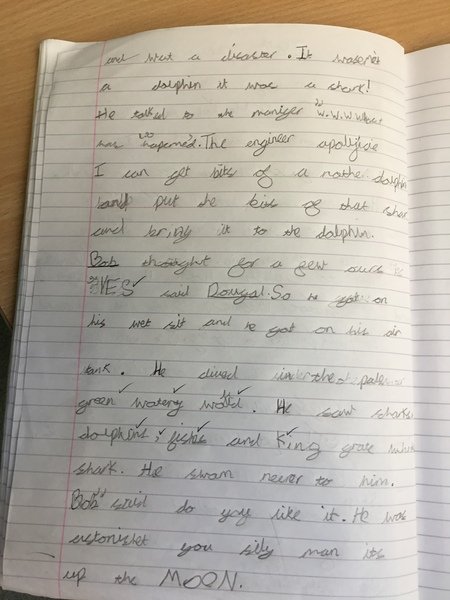 and wat a disaster. It wasen't
a dolphin it was a shark!
He talked to the maniger "W.W.W what
was haperned". The engineer apolijide
I can get bits of a nothe dolphin
and put the bits of that shar
and bring it to the dolphin.
Bob thought for a few ours
"YES" said Dougal. So he got on
his wet sit and he got on his air
tank. He dived under the pale
green watery world. He saw sharks
dolphins, fishis and King grate white
shark. He swam nerer to him.
Bob said do you like it. He was
astonishet you sily man its
up the MOON.